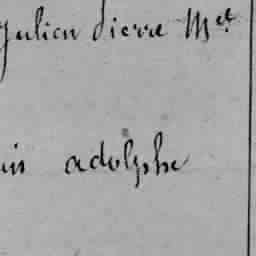 Julien Pierre M.et
uis adolphe